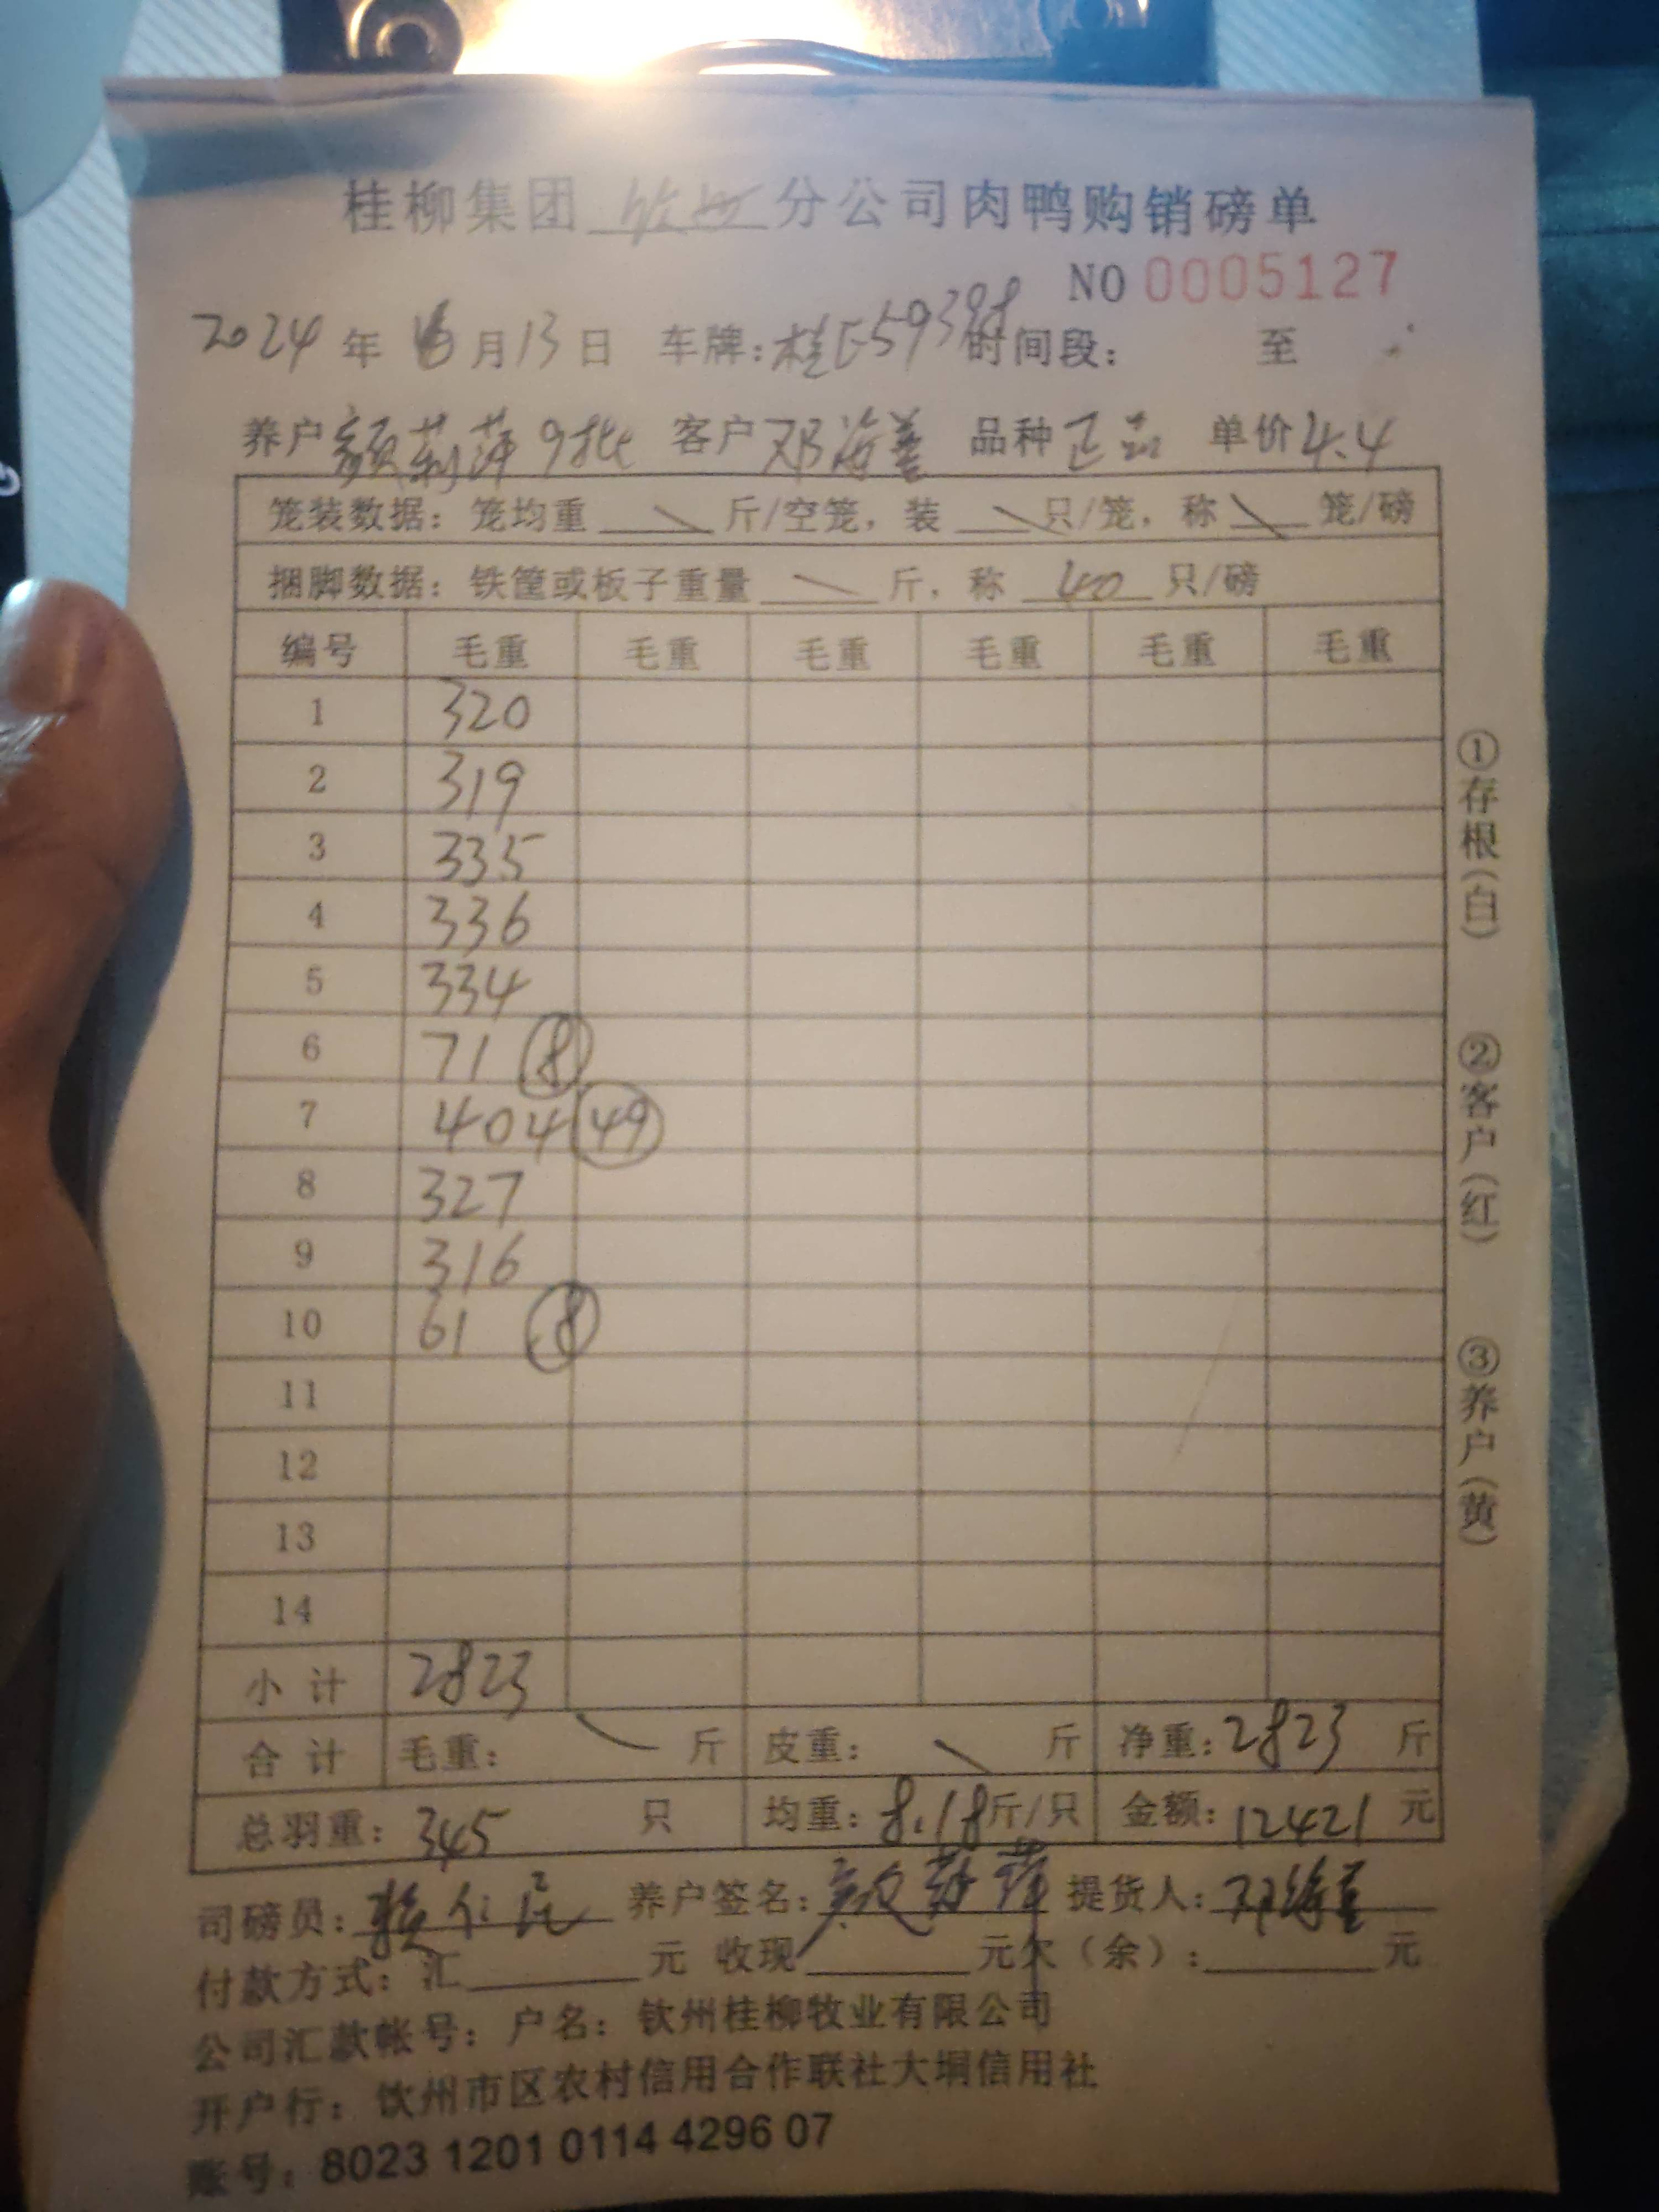 桂柳集团 钦州 分公司肉鸭购销磅单
NO 0005127
2024 年 月 13 日 车牌: 桂E59398 时间段: 至
养户 颜莉萍 9批 客户 邓海善 品种 正品 单价 4.4
笼装数据: 笼均重 \ 斤/空笼, 装 \ 只/笼, 称 \ 笼/磅
捆脚数据: 铁筐或板子重量 \ 斤, 称 40 只/磅
编号 毛重 毛重 毛重 毛重 毛重 毛重
1 320
2 319
3 335
4 336
5 334
6 71 ⑧
7 404 ㊾
8 327
9 316
10 61 ⑧
11
12
13
14
小计 2823
合计 毛重: \ 斤 皮重: \ 斤 净重: 2823 斤
总羽重: 345 只 均重: 8.18 斤/只 金额: 12421 元
司磅员: 养户签名: 颜莉萍 提货人: 邓海善
付款方式: 汇 元 收现 元欠（余）: 元
公司汇款帐号: 户名: 钦州桂柳牧业有限公司
开户行: 钦州市区农村信用合作联社大垌信用社
账号: 8023 1201 0114 4296 07
①存根(白)
②客户(红)
③养户(黄)